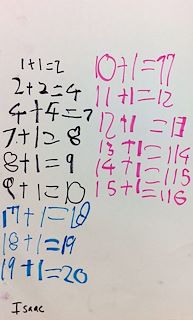 1+1=2
2+2=4
4+4=7
7+1=8
8+1=9
9+1=10
17+1=18
18+1=19
19+1=20
10+1=11
11+1=12
12+1=13
13+1=114
14+1=115
15+1=116
Isaac